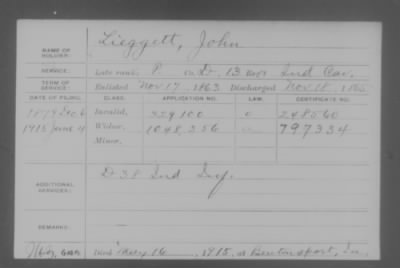 NAME OF SOLDIER: Lieggett, John
SERVICE: Late rank, P. Co. D, 13 Reg't Ind Cav.
TERM OF SERVICE: Enlisted Nov 17, 1863 Discharged Nov 18, 1865
DATE OF FILING. CLASS. APPLICATION NO. LAW. CERTIFICATE NO.
1879 Dec 6 Invalid, 329100 248560
1915 June 4 Widow, 1048356 797334
Minor,
ADDITIONAL SERVICES: D 38 Ind Inf.
REMARKS:
Died May 16, 1915, at Bentonsport, Ia,